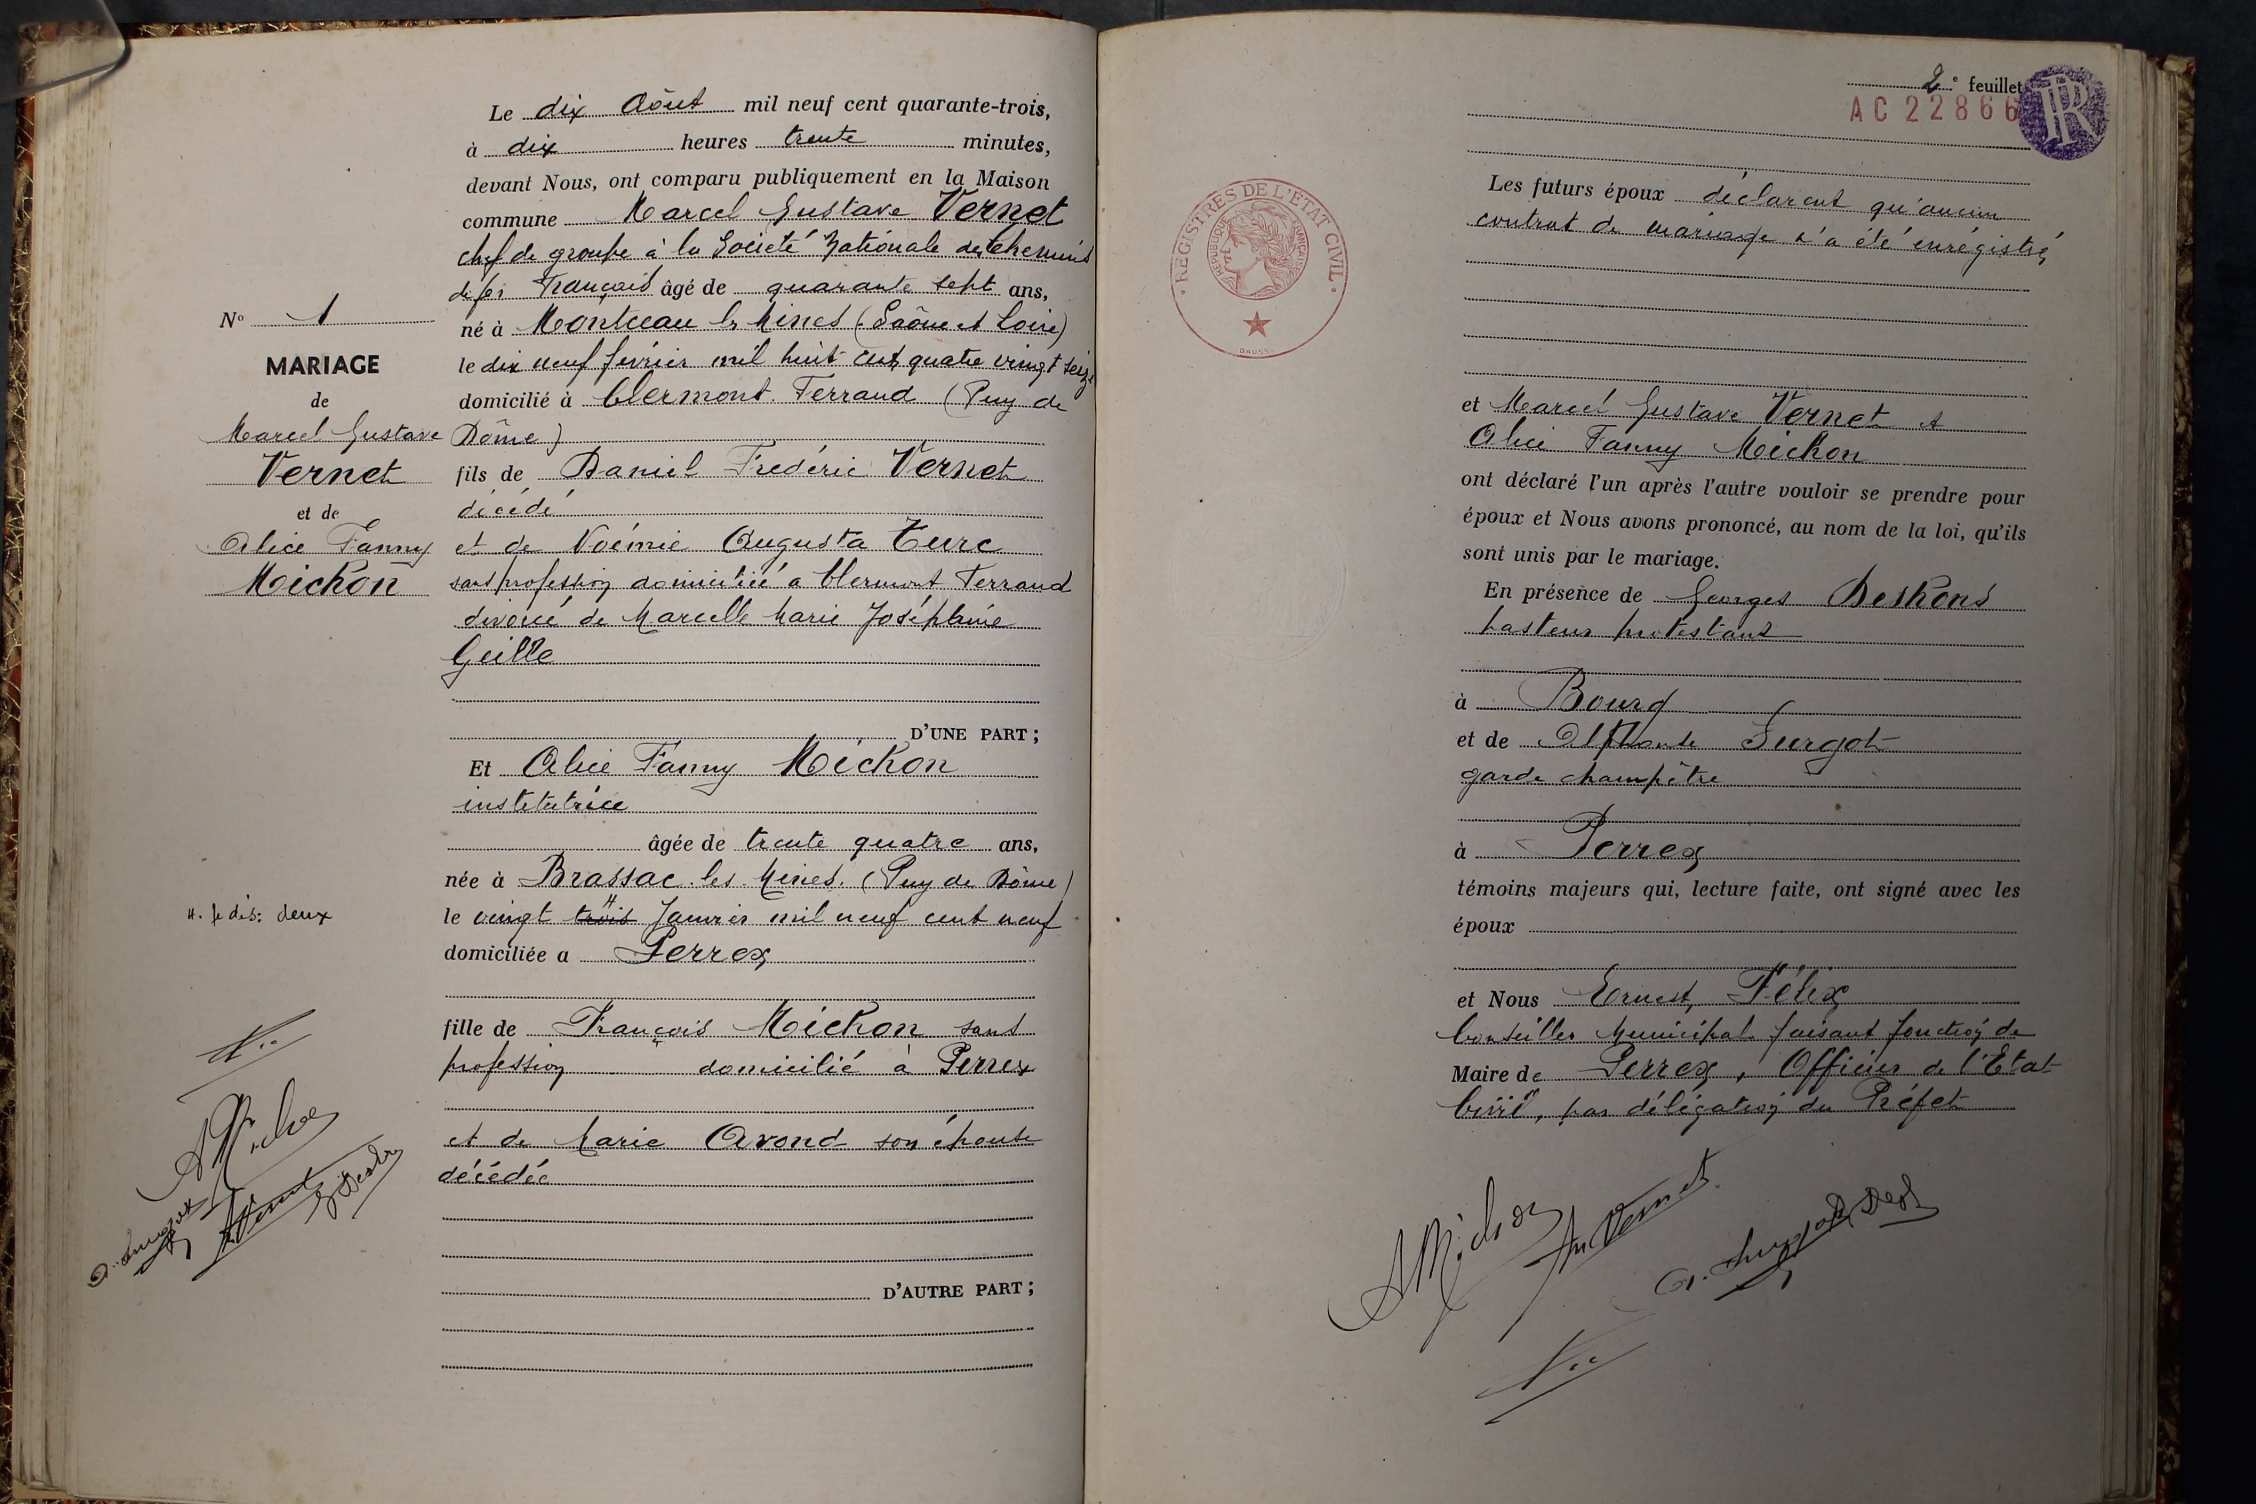 Le dix Août mil neuf cent quarante-trois,
à dix heures trente minutes,
devant Nous, ont comparu publiquement en la Maison
commune Marcel Gustave Vernet
chef de groupe à la Société Nationale des Chemins
de fer Français âgé de quarante sept ans,
né à Montceau les Mines (Saône et Loire)
le dix neuf février mil huit cent quatre vingt seize
domicilié à Clermont Ferrand (Puy de
Dôme)
fils de Daniel Frédéric Vernet
décédé
et de Noémie Augusta Turc
sans profession domiciliée à Clermont Ferrand
divorcé de Marcelle Marie Joséphine
Geille
D'UNE PART ;
Et Alice Fanny Michon
institutrice
âgée de trente quatre ans,
née à Brassac les Mines (Puy de Dôme)
le vingt trois Janvier mil neuf cent neuf
domiciliée a Perrex
fille de François Michon sans
profession domicilié à Perrex
et de Marie Avond son épouse
décédée
D'AUTRE PART ;
N° 1
MARIAGE
de
Marcel Gustave
Vernet
et de
Alice Fanny
Michon
H. je dis : deux
AMichon
Vernet
2e feuillet
AC 22866
RF
REGISTRES DE L'ÉTAT CIVIL
RÉPUBLIQUE FRANÇAISE
Les futurs époux déclarent qu'aucun
contrat de mariage n'a été enrégistré,
et Marcel Gustave Vernet et
Alice Fanny Michon
ont déclaré l'un après l'autre vouloir se prendre pour
époux et Nous avons prononcé, au nom de la loi, qu'ils
sont unis par le mariage.
En présence de Georges
pasteur protestant
à Bourg
et de Alphonse Surgot
garde champêtre
à Perrex
témoins majeurs qui, lecture faite, ont signé avec les
époux
et Nous Ernest, Félix
Conseiller Municipal faisant fonction de
Maire de Perrex, Officier de l'Etat
Civil, par délégation du Préfet
AMichon
Vernet